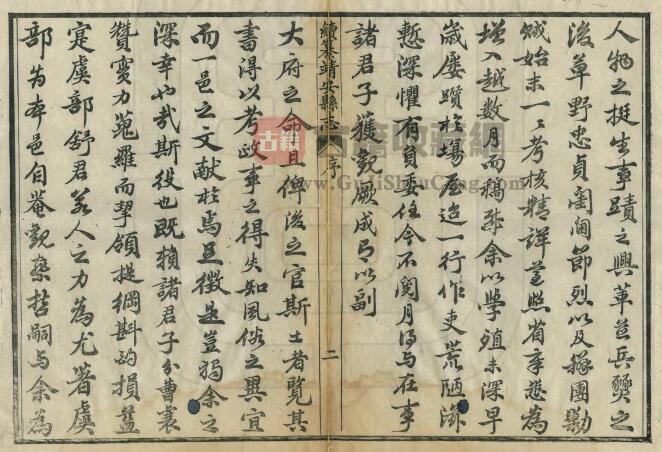 人物之挺生事蹟之興革並兵燹之
後草野忠貞閨閫節烈以及辦團勦
賊始末一一考核精詳並照省章悉為
增入越數月而稿成余以學殖未深早
歲屢躓於場屋迨一行作吏荒陋滋
慙深懼有負委任今不閱月得与在事
諸君子獲觀厥成乃以副
續纂靖安縣志 序 二
大府之命且俾後之官斯土者覽其
書得以考政事之得失知風俗之異宜
而一邑之文献於焉足徵是豈獨余之
深幸也哉斯役也既賴諸君子分曹襄
贊實力蒐羅而挈領提綱斟酌損益
寔虞部舒君若人之力為尤著虞
部為本邑自菴觀察哲嗣与余為
古籍
古籍收藏網
www.GuJiShouCang.com